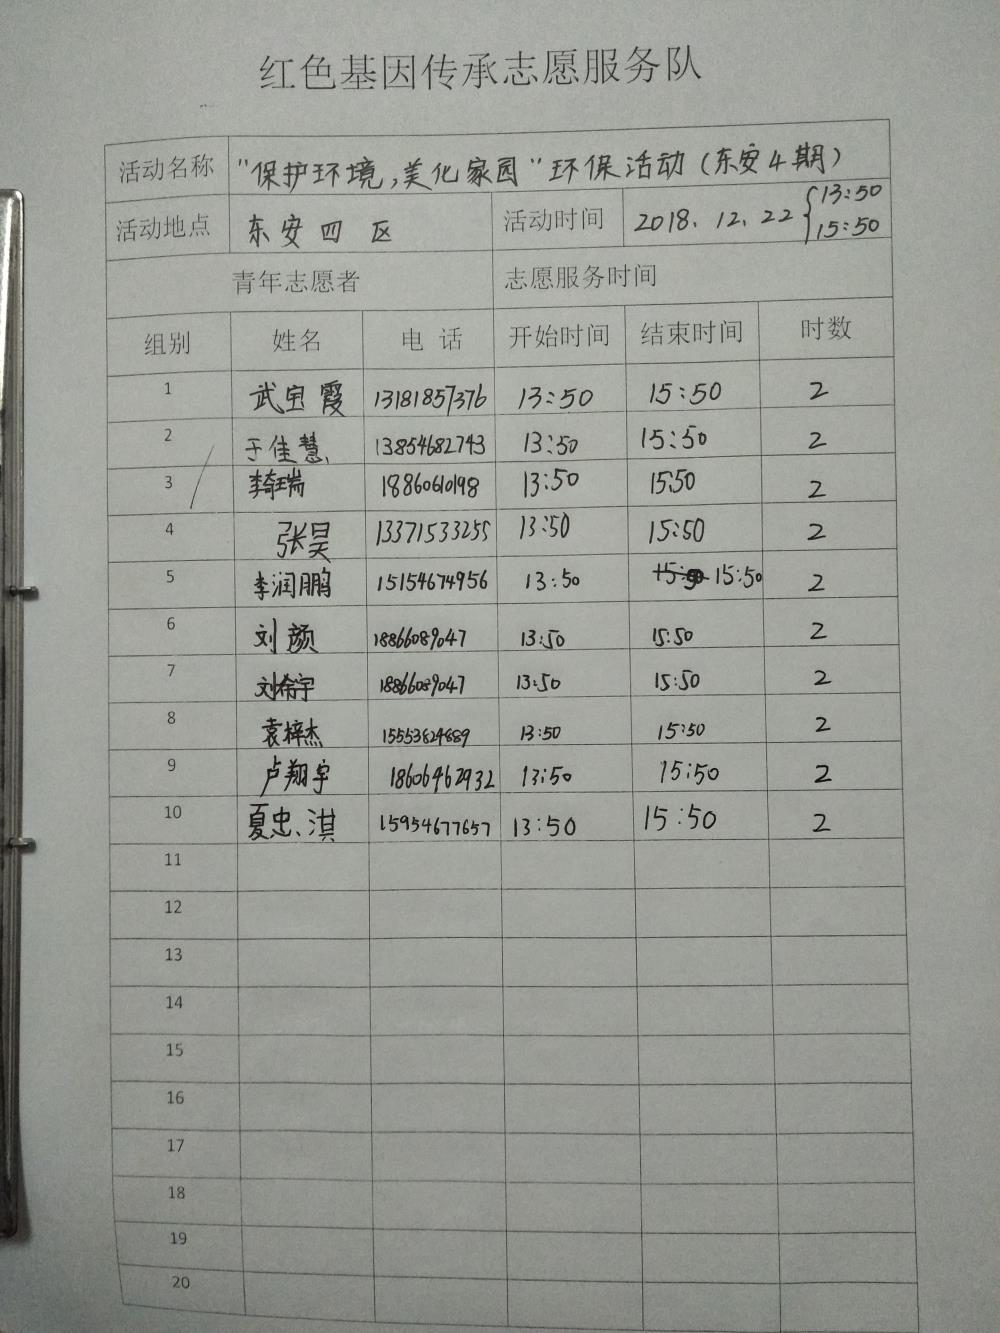 红色基因传承志愿服务队
活动名称 "保护环境,美化家园"环保活动(东安4期)
活动地点 东安四区 活动时间 2018.12.22 {13:50 15:50
青年志愿者 志愿服务时间
组别 姓名 电话 开始时间 结束时间 时数
1 武宝霞 13181857376 13:50 15:50 2
2 于佳慧 13854682743 13:50 15:50 2
3 李奇瑞 18860610198 13:50 15:50 2
4 张昊 13371533255 13:50 15:50 2
5 李润鹏 15154674956 13:50 15:50 15:50 2
6 刘颜 18866089047 13:50 15:50 2
7 刘希宇 18866089047 13:50 15:50 2
8 袁梓杰 15553824889 13:50 15:50 2
9 卢翔宇 18606462932 13:50 15:50 2
10 夏忠淇 15954677657 13:50 15:50 2
11
12
13
14
15
16
17
18
19
20